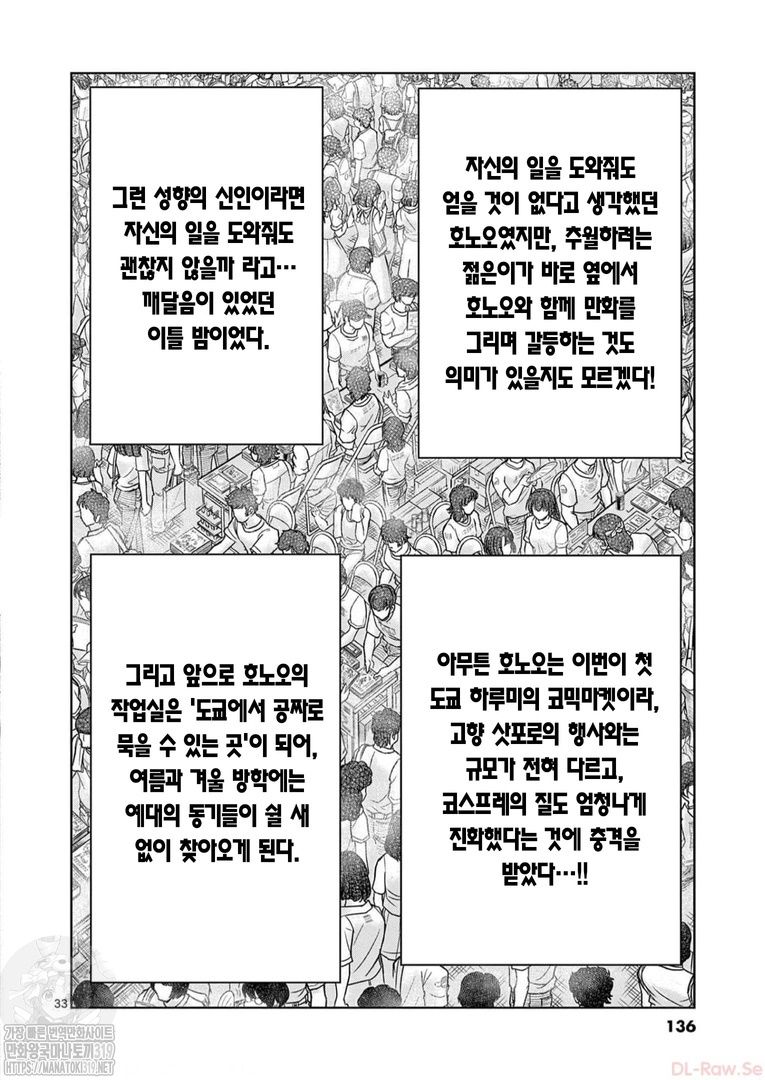 자신의 일을 도와줘도
얻을 것이 없다고 생각했던
호노오였지만, 추월하려는
젊은이가 바로 옆에서
호노오와 함께 만화를
그리며 갈등하는 것도
의미가 있을지도 모르겠다!
그런 성향의 신인이라면
자신의 일을 도와줘도
괜찮지 않을까 라고…
깨달음이 있었던
이틀 밤이었다.
아무튼 호노오는 이번이 첫
도쿄 하루미의 코믹마켓이라,
고향 삿포로의 행사와는
규모가 전혀 다르고,
코스프레의 질도 엄청나게
진화했다는 것에 충격을
받았다…!!
그리고 앞으로 호노오의
작업실은 '도쿄에서 공짜로
묵을 수 있는 곳'이 되어,
여름과 겨울 방학에는
예대의 동기들이 쉴 새
없이 찾아오게 된다.
33
136
가장 빠른 번역만화사이트
만화왕국마나토끼319
HTTPS://MANATOKI319.NET
DL-Raw.Se